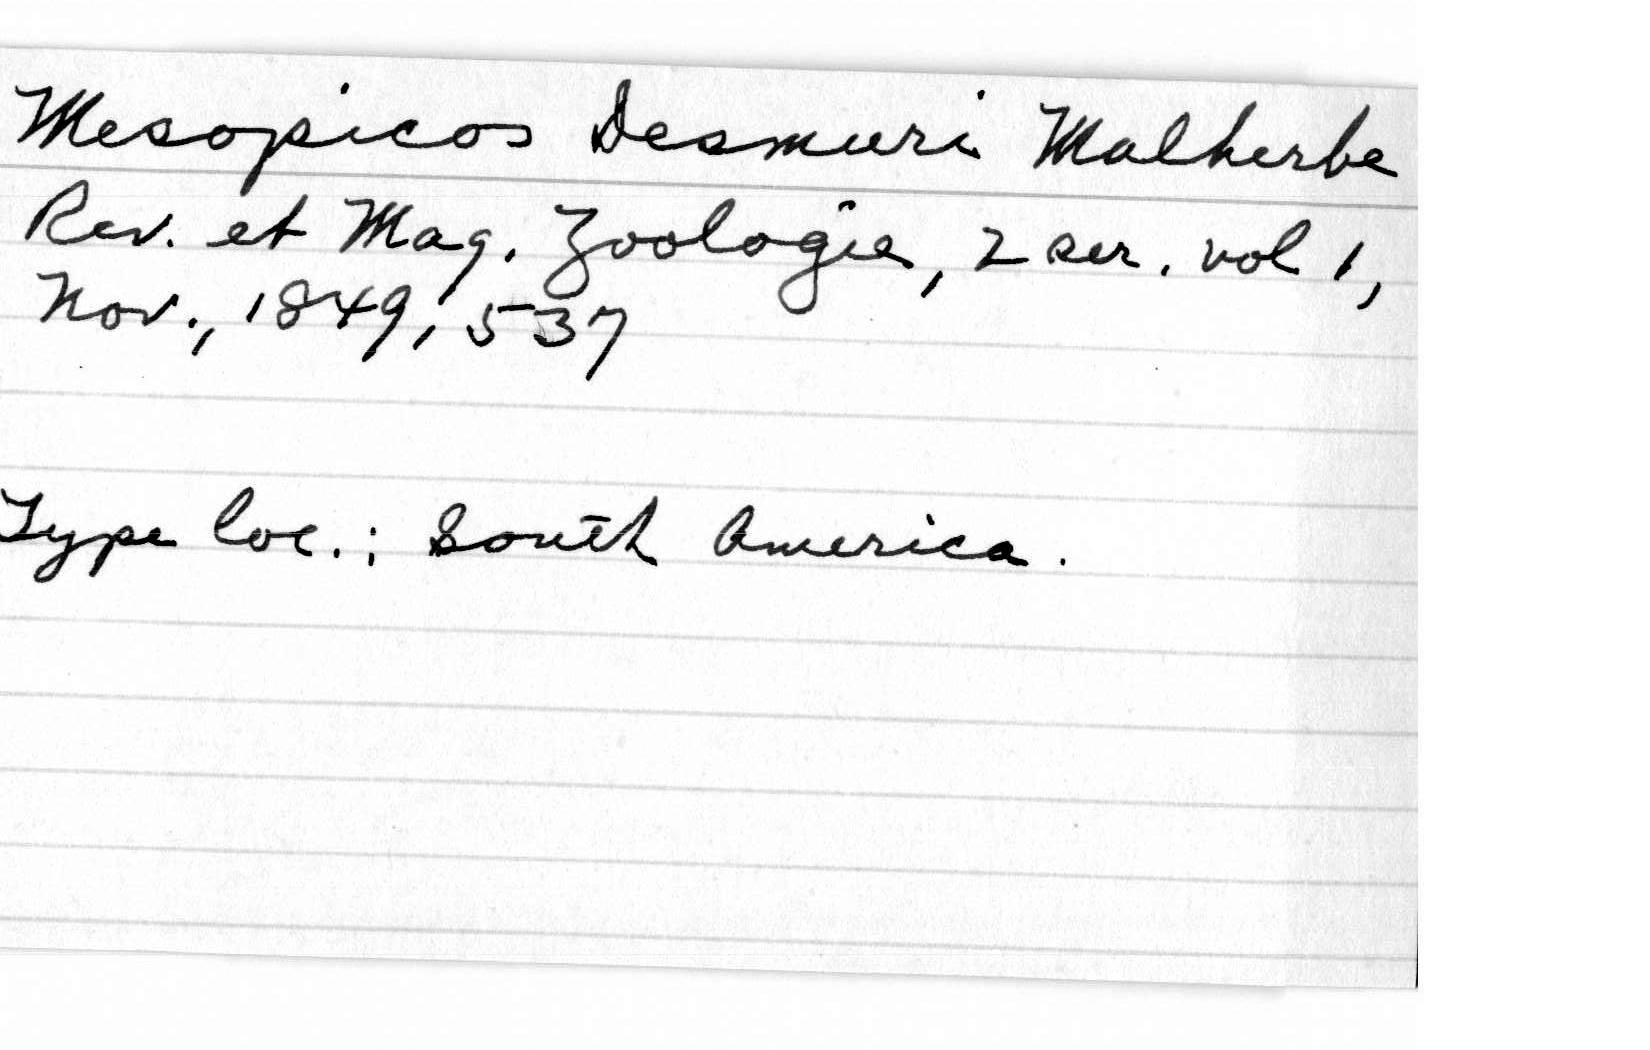 Mesopicos Desmuri Malherbe
Rev. et Mag. Zoologie, 2 ser. vol 1,
Nov., 1849, 537
Type loc.; South America.